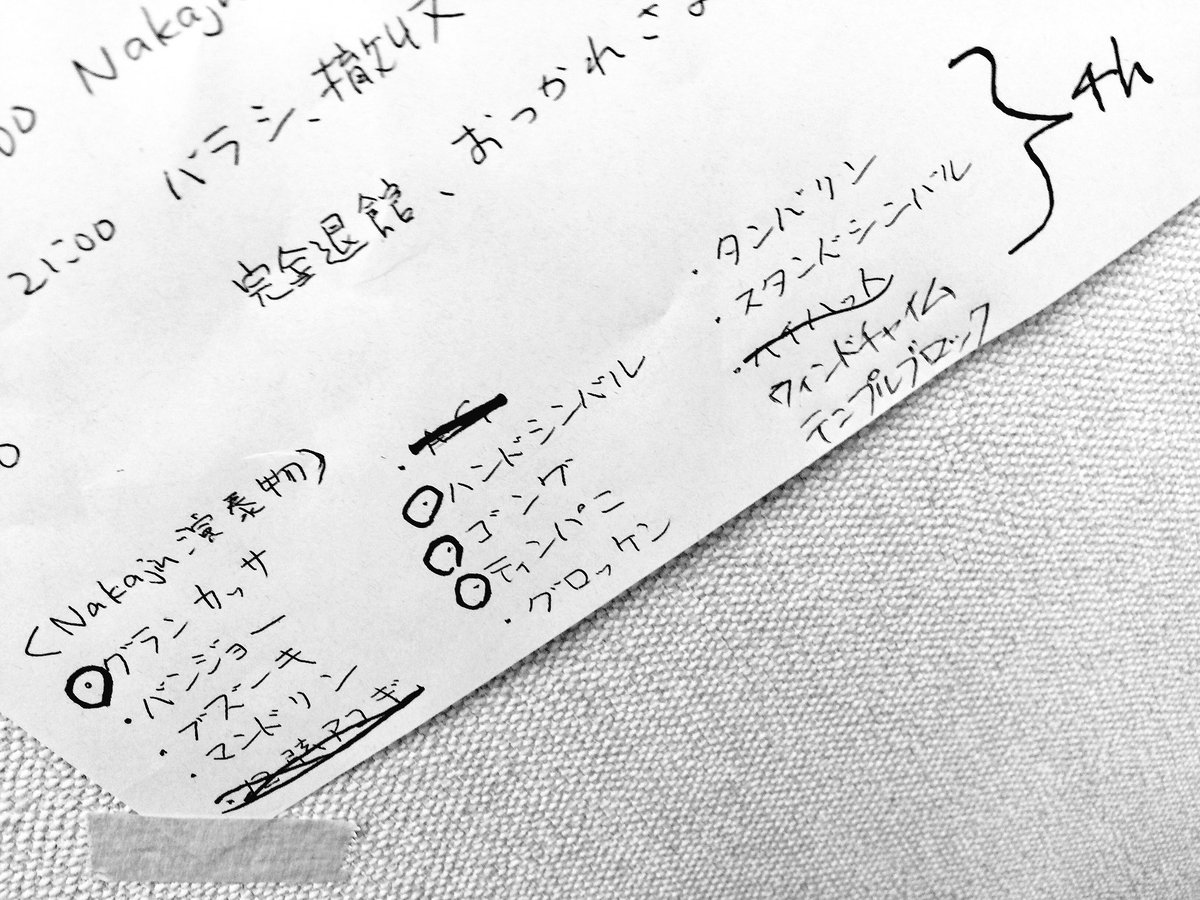 00 Nakaji
バラシ、撤収
21:00 完全退館、おっかれさま
4h
0
〈Nakajin演奏物〉
・グランカッサ
・バンジョー
・ブズーキ
・マンドリン
・12弦アコギ
・ハンドシンバル
・ゴング
・ティンパニ
・グロッケン
・タンバリン
・スタンドシンバル
・ハイハット
ウィンドチャイム
テンプルブロック